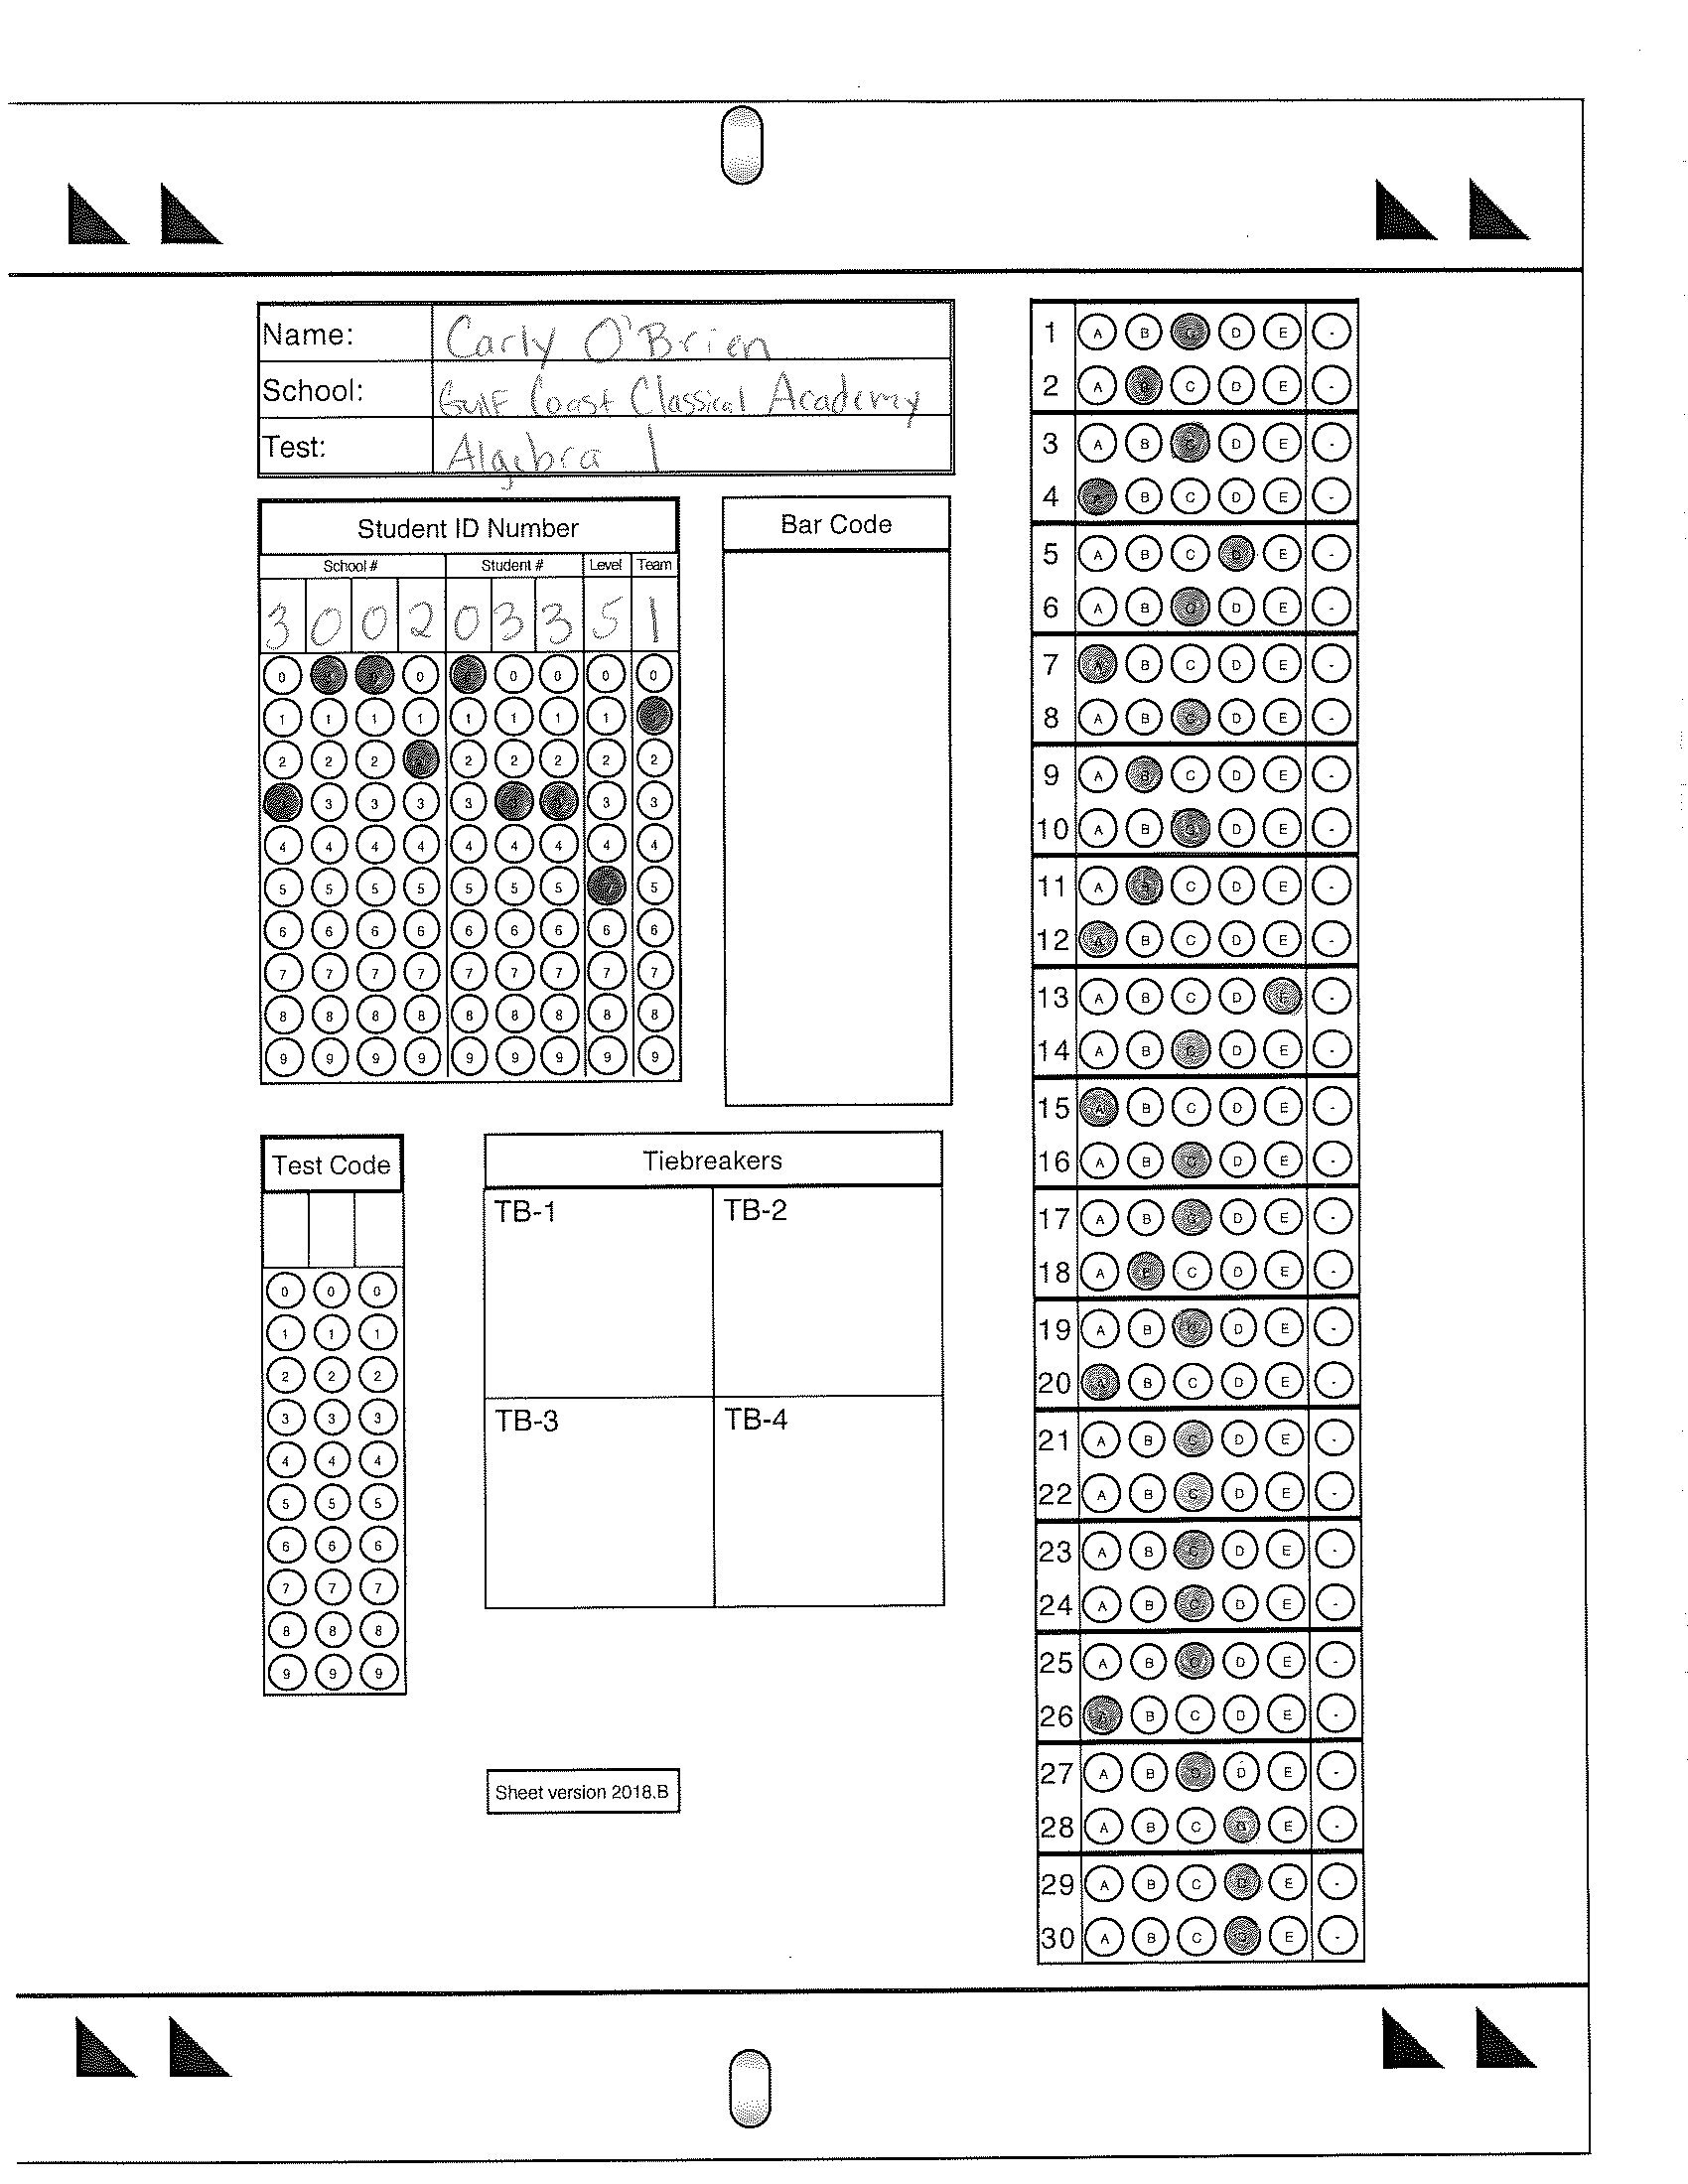 Name: Carly O'Brien
School: Gulf Coast Classical Academy
Test: Algebra 1
Student ID Number
School # Student # Level Team
3 0 0 2 0 3 3 5 1
0 0 0 0 0 0
1 1 1 1 1 1 1 1
2 2 2 2 2 2 2 2
3 3 3 3 3 3
4 4 4 4 4 4 4 4 4
5 5 5 5 5 5 5 5
6 6 6 6 6 6 6 6 6
7 7 7 7 7 7 7 7 7
8 8 8 8 8 8 8 8 8
9 9 9 9 9 9 9 9 9
Bar Code
Test Code
0 0 0
1 1 1
2 2 2
3 3 3
4 4 4
5 5 5
6 6 6
7 7 7
8 8 8
9 9 9
Tiebreakers
TB-1 TB-2
TB-3 TB-4
Sheet version 2018.B
1 A B C D E -
2 A B C D E -
3 A B C D E -
4 A B C D E -
5 A B C D E -
6 A B C D E -
7 A B C D E -
8 A B C D E -
9 A B C D E -
10 A B C D E -
11 A B C D E -
12 A B C D E -
13 A B C D E -
14 A B C D E -
15 A B C D E -
16 A B C D E -
17 A B C D E -
18 A B C D E -
19 A B C D E -
20 A B C D E -
21 A B C D E -
22 A B C D E -
23 A B C D E -
24 A B C D E -
25 A B C D E -
26 A B C D E -
27 A B C D E -
28 A B C D E -
29 A B C D E -
30 A B C D E -